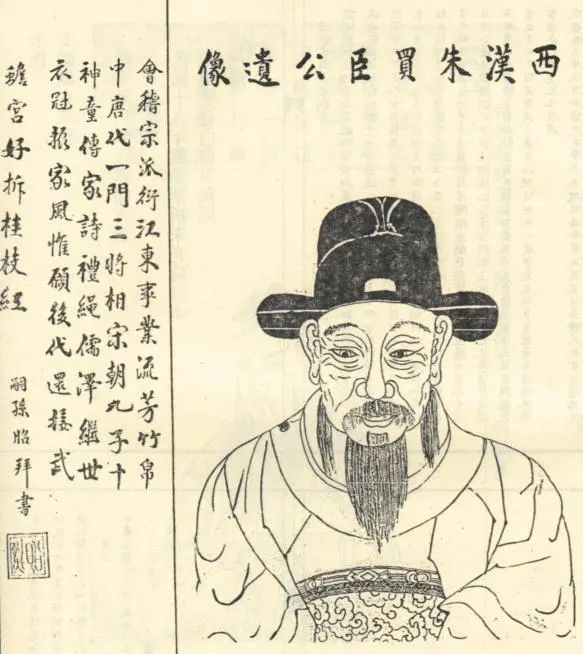 西漢朱買臣公遺像
會稽宗派衍江東事業流芳竹帛
中唐代一門三將相宋朝九子十
神童傳家詩禮繩儒澤繼世
衣冠振家風惟願後代還接武
蟾宮好拆桂枝
嗣孫昭拜書